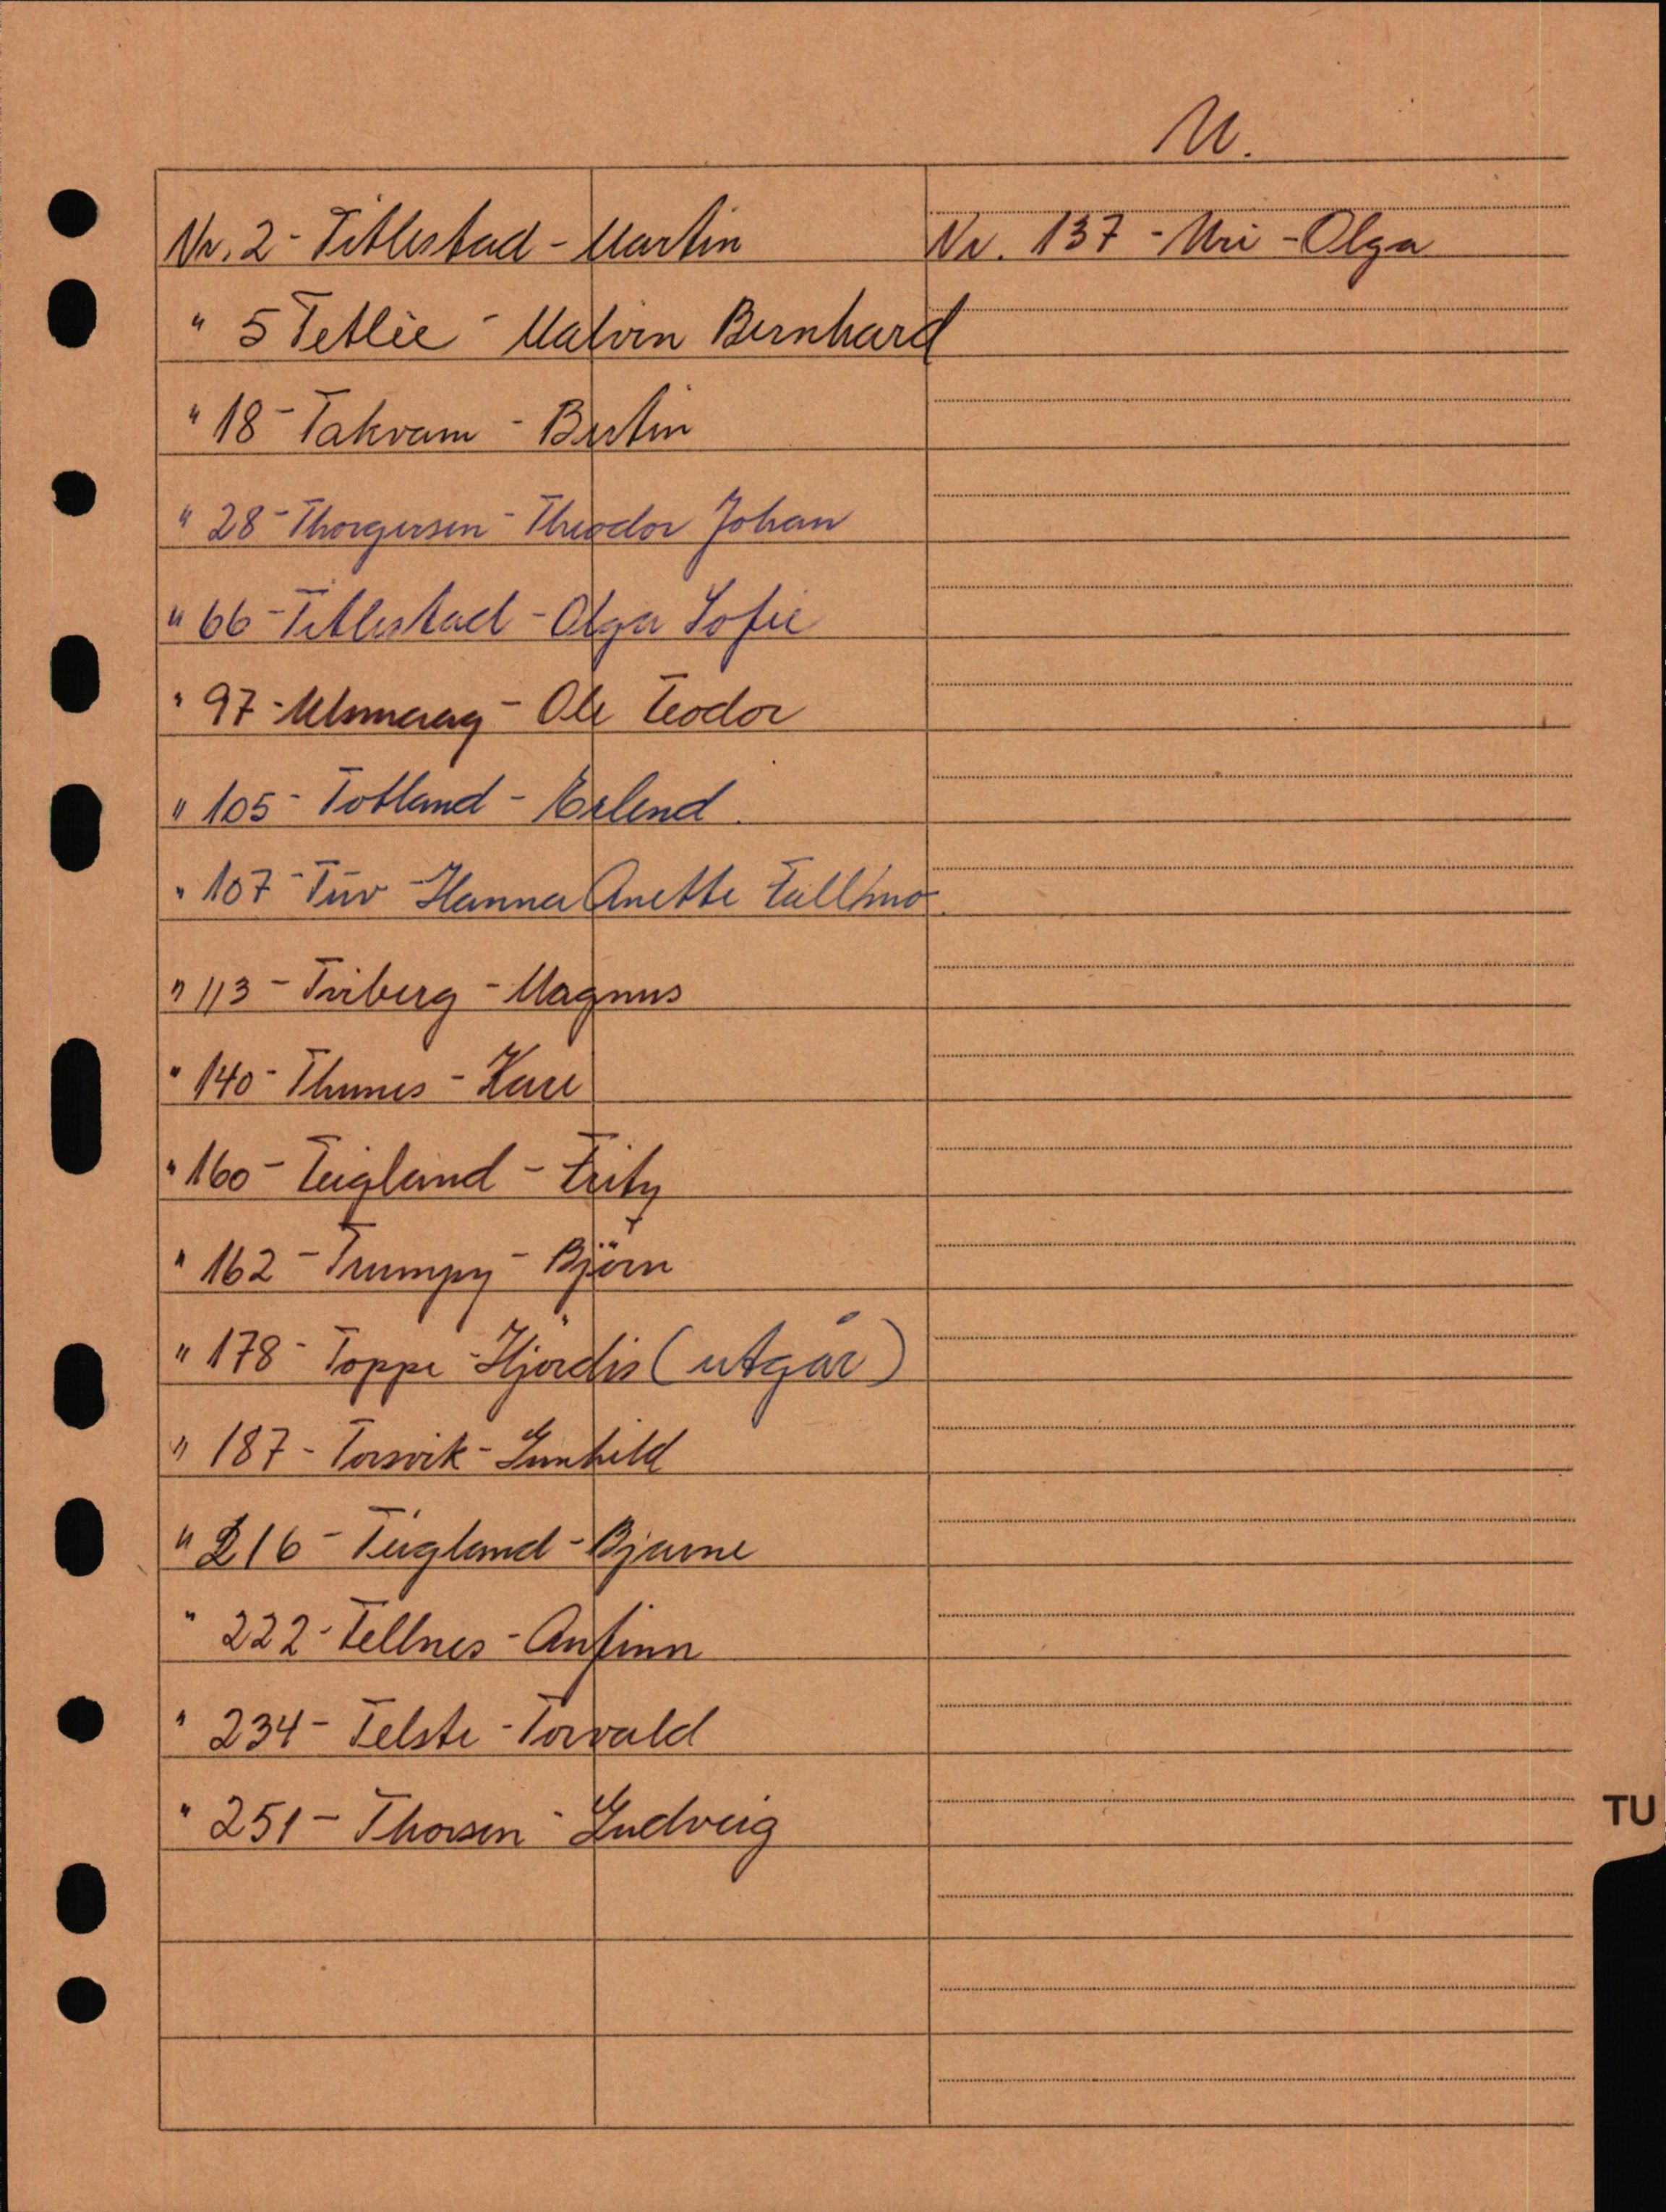 U.
Nr. 2 - Titlestad - Martin
Nr. 137 - Uri - Olga
" 5 Tetlie - Malvin Bernhard
" 18 - Takvam - Bertin
" 28 - Thorgersen - Theodor Johan
" 66 - Titlestad - Olga Sofie
" 97 - Ulsmaag - Ole Teodor
" 105 - Totland - Erlend.
" 107 - Tuv - Hanna Anette
" 113 - Tviberg - Magnus
" 140 - Thunes - Kare
" 160 - Teigland - Fritz
" 162 - Trumpy - Björn
" 178 - Toppe - Hjördis (utgår)
" 187 - Torsvik - Gunhild
" 216 - Teigland - Bjarne
" 222 - Tellnes - Anfinn
" 234 - Telste - Torvald
" 251 - Thorsen - Ludveig
TU